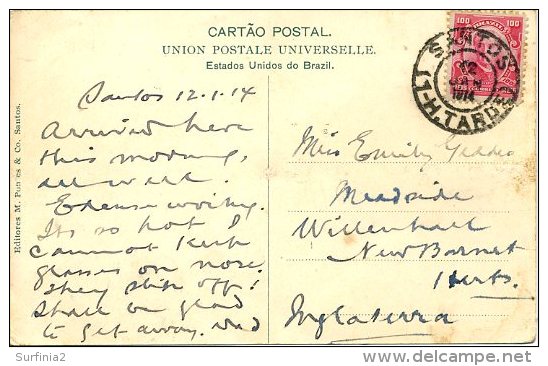 CARTÃO POSTAL.
UNION POSTALE UNIVERSELLE.
Estados Unidos do Brazil.
100 BRAZIL 100
SANTOS
12
JAN
1914
H.TARDE
Editores M. & Co. Santos.
Santos 12.1.14
Arrived here
this morning,
all well.
Excuse writing.
Its so hot I
cannot keep
glasses on nose.
They slip off!
Shall be glad
to get away.
Miss Emily
Meadside
Willenhall
New Barnet
Herts.
Inglaterra
Surfinia2
delcampe.net